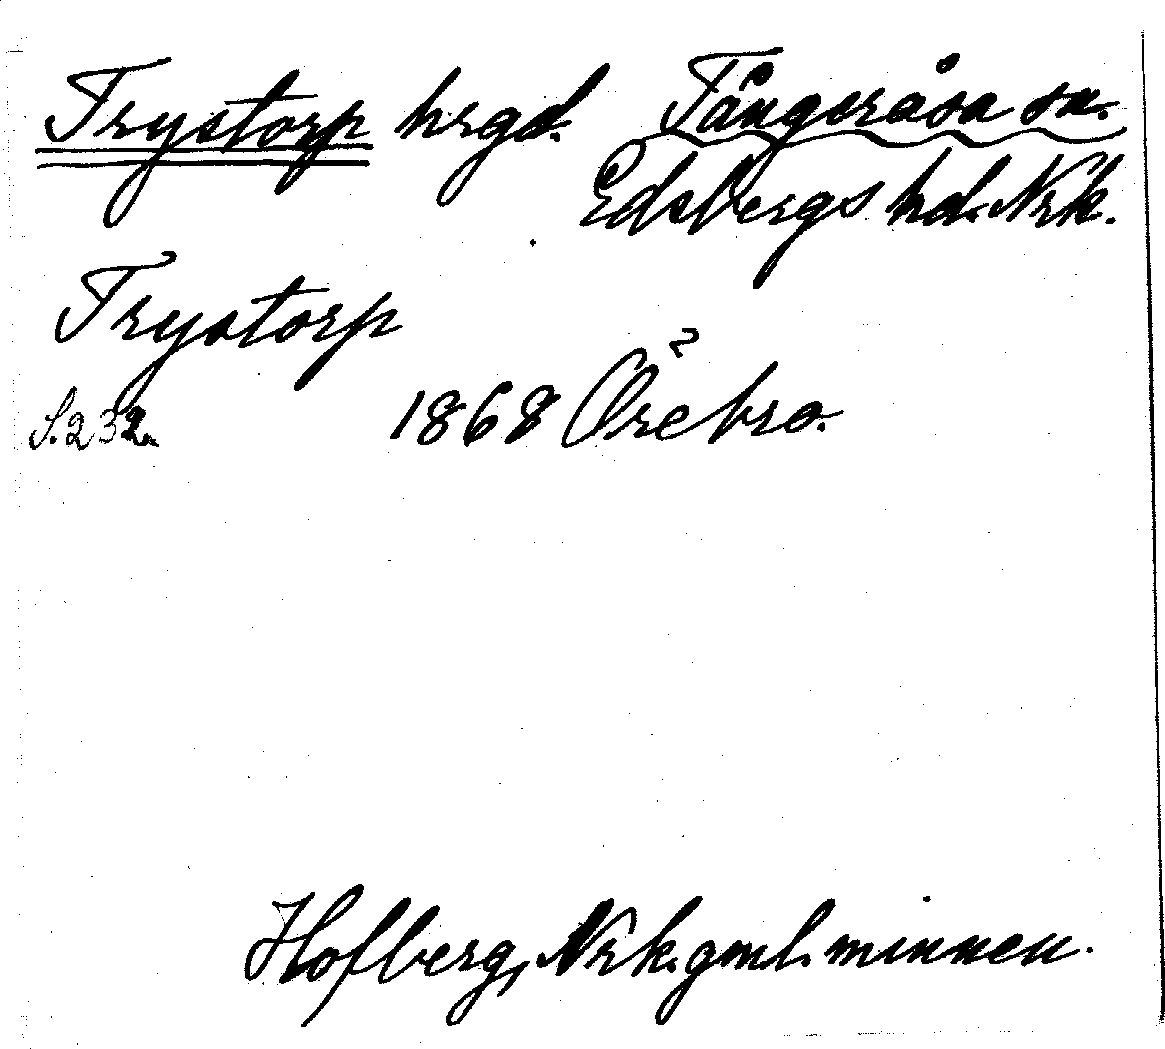 Trystorp hrgd. Tångeråsa sn.
Edsbergs hd. Nrk.
Trystorp
S. 232. 1868 Örebro.
Hofberg, Nrk. gml. minnen.